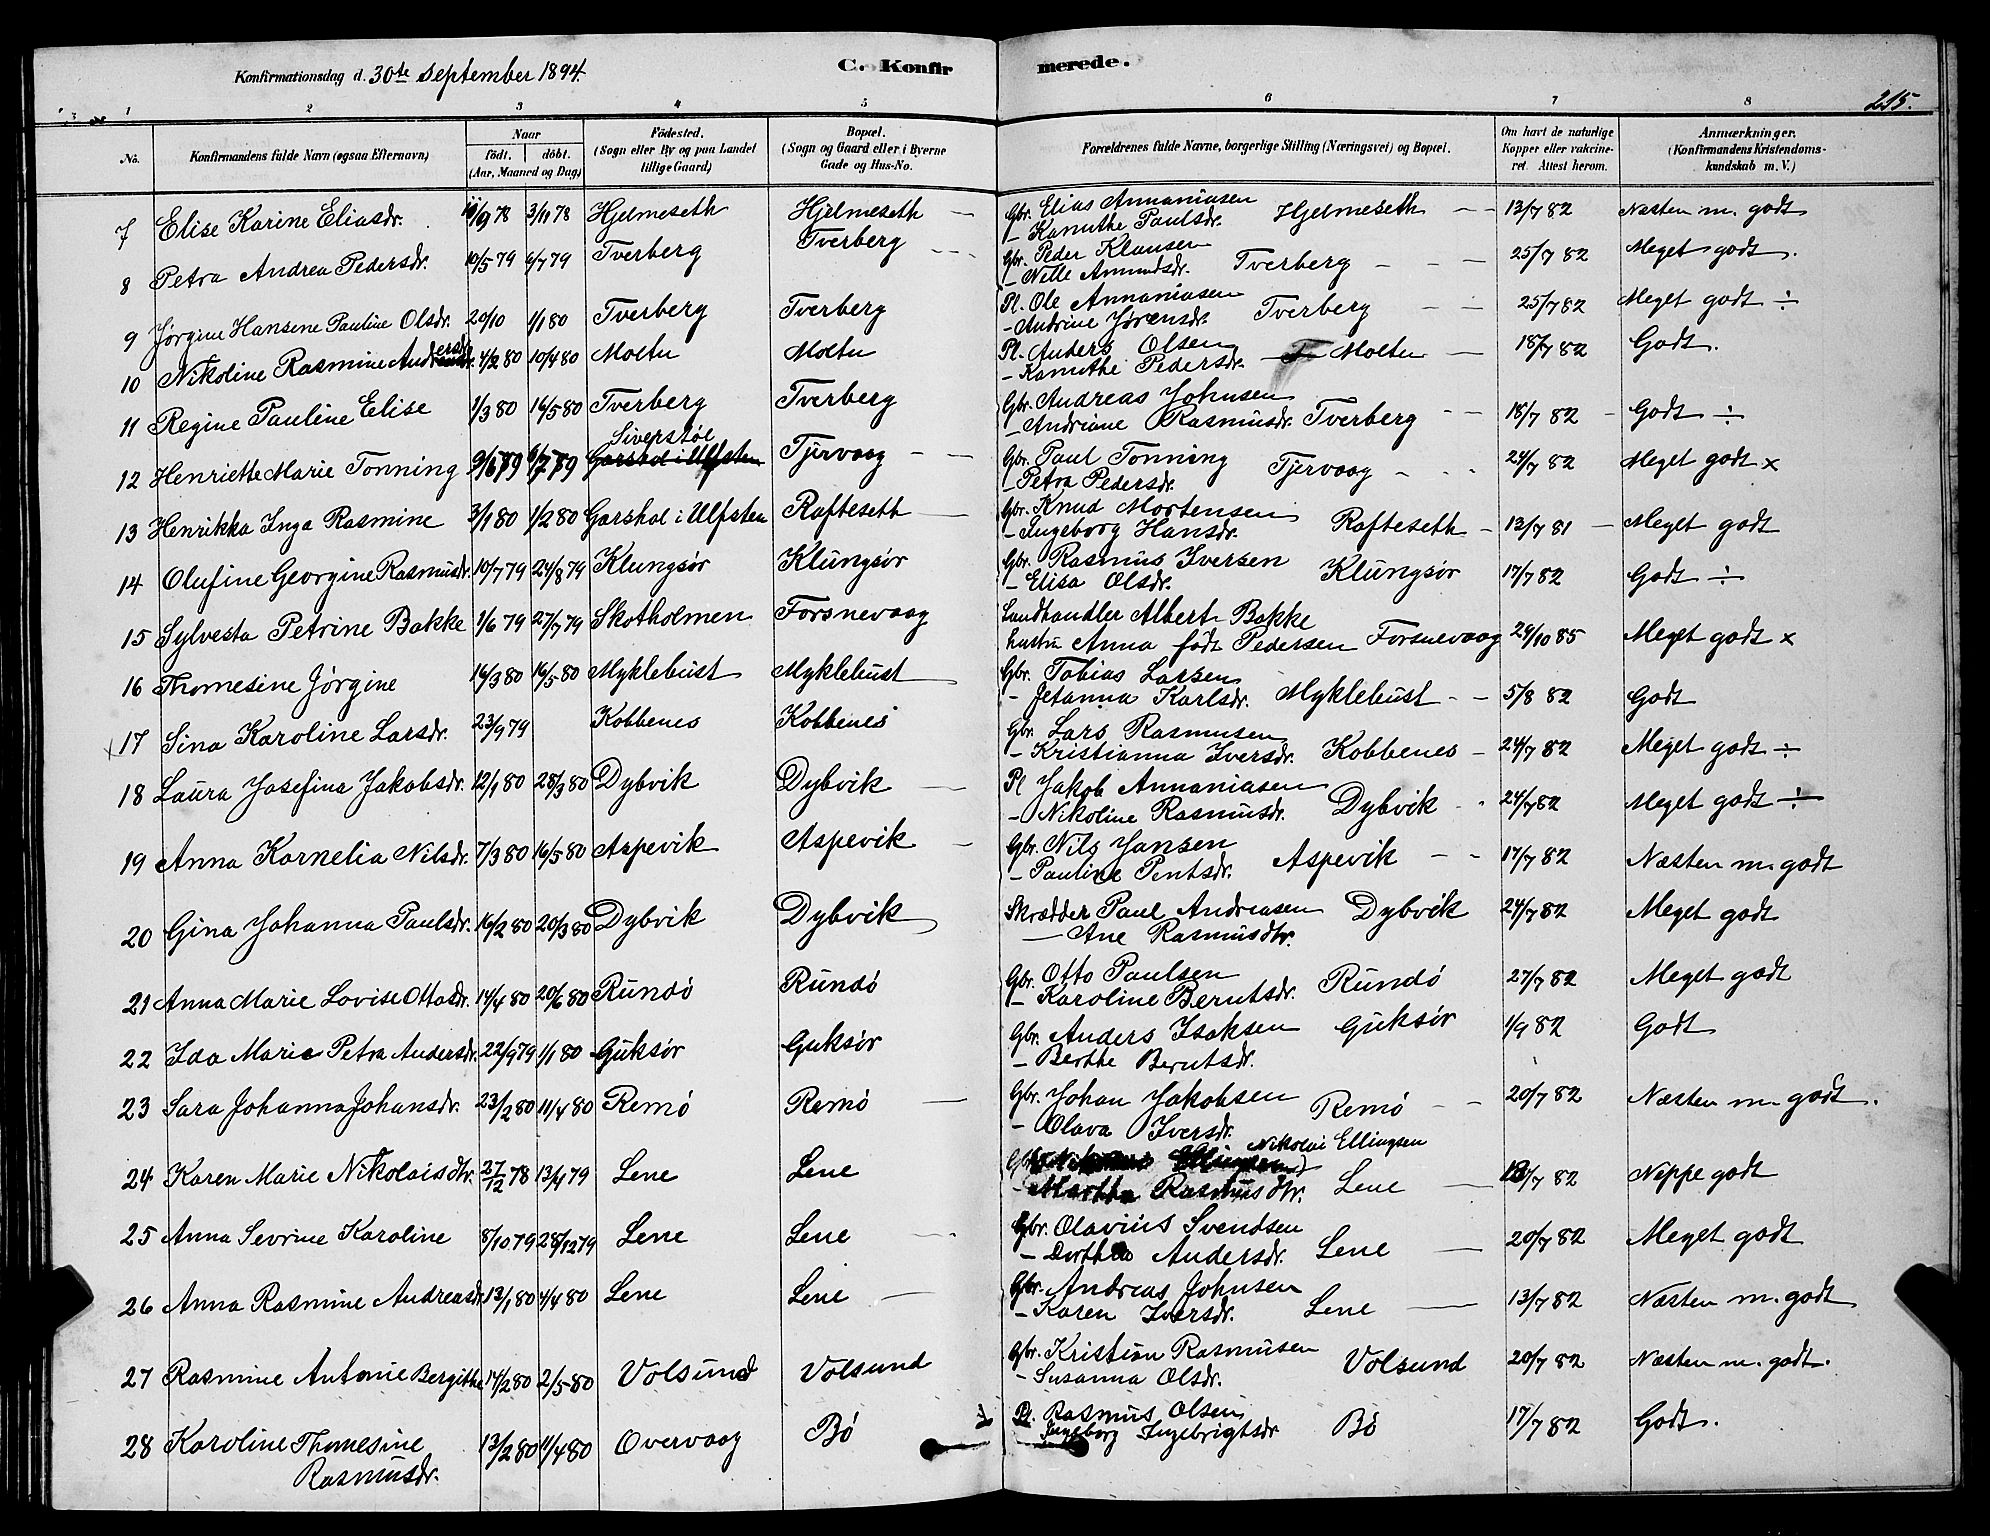 Konfirmationsdag d. 30te September 1894.
C. Konfirmerede.
215.
1 2 3 4 5 6 7 8
No. Konfirmandens fulde Navn (ogsaa Efternavn) Naar født, døbt. (Aar, Maaned og Dag) Fødested. (Sogn eller By og paa Landet tillige Gaard) Bopæl. (Sogn og Gaard eller i Byerne Gade og Hus-No. Forældrenes fulde Navne, borgerlige Stilling (Næringsvei) og Bopæl. Om havt de naturlige Kopper eller vakcineret. Attest herom. Anmærkninger. (Konfirmandens Kristendomskundskab m. V.)
7 Elise Karine Eliasdr. 19/9 78 3/11 78 Hjelmeseth Hjelmeseth Gbr. Elias Annaniasen - Kanuthe Paulsdr. Hjelmeseth 13/7 82 Næsten m. godt
8 Petra Andrea Pedersdr. 10/5 79 6/7 79 Tverberg Tverberg Gbr. Peder Klausen - Nelle Amundsdr. Tverberg 25/7 82 Meget godt.
9 Jørgine Hansene Pauline Olsdr. 20/10 1/1 80 Tverberg Tverberg Pl. Ole Annaniasen - Andrine Jørensdr. Tverberg 25/7 82 Meget godt ÷
10 Nikoline Rasmine Andersdr. 4/2 80 10/4 80 Moltu Moltu Pl. Anders Olsen - Kanuthe Pedersdr. Moltu 18/7 82 Godt.
11 Regine Pauline Elise 1/3 80 16/5 80 Tverberg Tverberg Gbr. Andreas Johnsen - Andriane Rasmusdr. Tverberg 18/7 82 Godt ÷
12 Henriette Marie Tonning 9/6 79 6/7 79 Siverstøl Garshol i Ulfsten Tjervaag Gbr. Paul Tonning - Petra Pedersdr. Tjervaag 24/7 82 Meget godt x
13 Henrikka Inga Rasmine 3/1 80 1/2 80 Garshol i Ulfsten Rafteseth Gbr. Knud Mortensen - Ingeborg Hansdr. Rafteseth 13/7 81 Meget godt
14 Olufine Georgine Rasmusdr. 10/7 79 24/8 79 Klungsør Klungsør Gbr. Rasmus Iversen - Elisa Olsdr. Klungsør 17/7 82 Godt ÷
15 Sylvesta Petrine Bakke 1/6 79 27/7 79 Skotholmen Forsnevaag Landhandler Albert Bakke hustru Anna født Pedersen Forsnevaag 24/10 85 Meget godt x
16 Thomesine Jørgine 16/3 80 16/5 80 Myklebust Myklebust Gbr. Tobias Larsen - Jetanna Karlsdr. Myklebust 5/8 82 Godt
17 Sina Karoline Larsdr. 23/9 79 Kobbenes Kobbenes Gbr. Lars Rasmusen - Kristianna Iversdr. Kobbenes 24/7 82 Meget godt ÷
18 Laura Josefina Jakobsdr. 12/1 80 28/3 80 Dybvik Dybvik Pl Jakob Annaniasen - Nikoline Rasmusdr. Dybvik 24/7 82 Meget godt ÷
19 Anna Kornelia Nilsdr. 7/3 80 16/5 80 Aspevik Aspevik Gbr. Nils Jansen - Pauline Pentsdr. Aspevik 17/7 82 Næsten m. godt
20 Gina Johanna Paulsdr. 16/2 80 20/3 80 Dybvik Dybvik Skrædder Paul Andreasen - Ane Rasmusdtr. Dybvik 24/7 82 Meget godt
21 Anna Marie Lovise Ottosdr. 14/4 80 20/6 80 Rundø Rundø Gbr. Otto Paulsen - Karoline Berntsdr. Rundø 27/7 82 Meget godt
22 Ida Marie Petra Andersdr. 22/9 79 1/1 80 Guksør Guksør Gbr. Anders Isaksen - Berthe Berntsdr. Guksør 1/9 82 Godt
23 Sara Johanna Johansdr. 23/2 80 11/4 80 Remø Remø Gbr. Johan Jakobsen - Olava Iversdr. Remø 20/7 82 Næsten m. godt.
24 Karen Marie Nikolaisdtr. 27/12 78 13/4 79 Lene Lene Gbr. Nikolai Ellingsen - Martha Rasmusdtr. Lene 18/7 82 Neppe godt
25 Anna Sevrine Karoline 8/10 79 28/12 79 Lene Lene Gbr. Olavius Svendsen - Dorthea Andersdr. Lene 20/7 82 Meget godt
26 Anna Rasmine Andreasdr. 13/1 80 4/4 80 Lene Lene Gbr. Andreas Johnsen - Karen Iversdr. Lene 13/7 82 Næsten m. godt
27 Rasmine Antonie Bergithe 14/2 80 2/5 80 Volsund Volsund Gbr. Kristian Rasmusen - Susanna Olsdr. Volsund 20/7 82 Næsten m. godt.
28 Karoline Thomesine Rasmusdr. 13/2 80 11/4 80 Overvaag Bø Pl. Rasmus Olsen Ingeborg Ingebrigtsdr Bø 17/7 82 Godt.